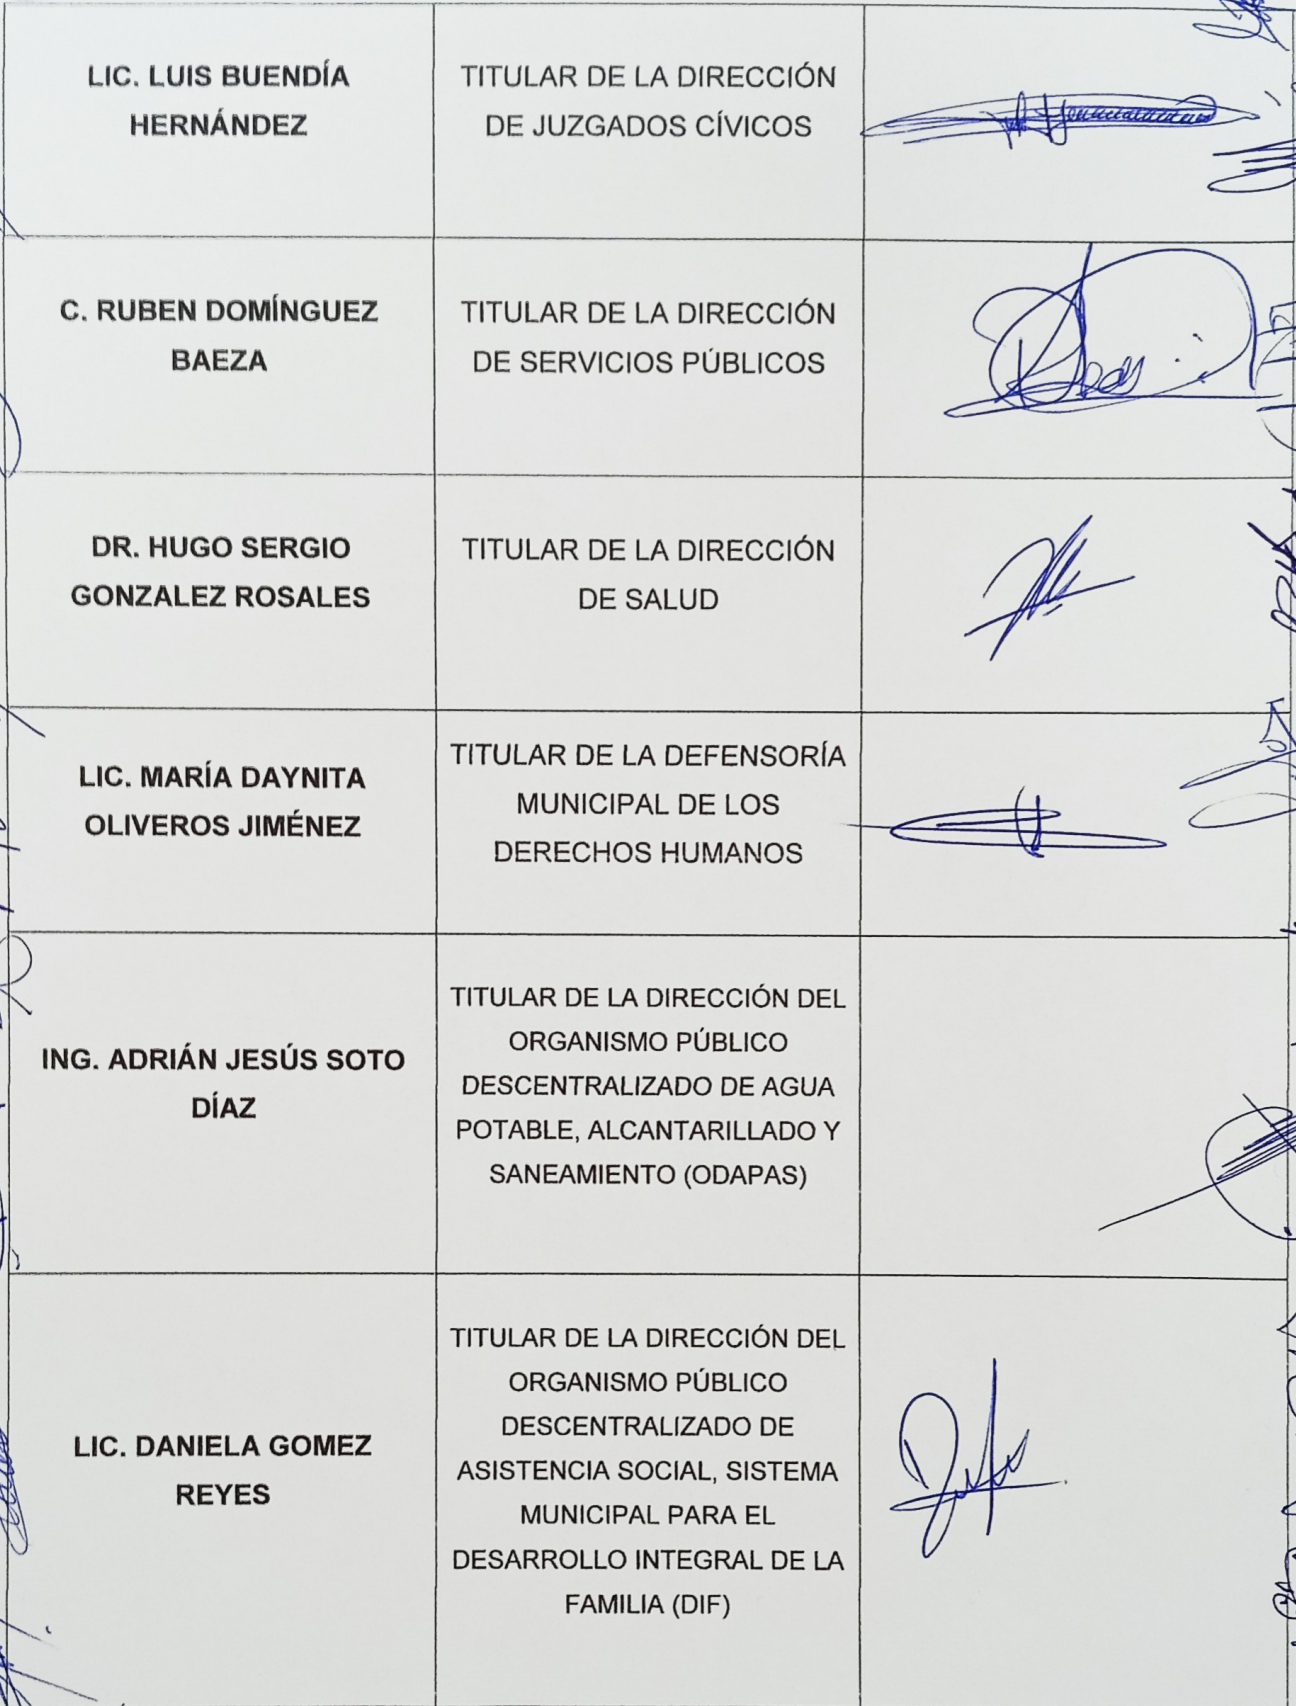 LIC. LUIS BUENDÍA
HERNÁNDEZ
TITULAR DE LA DIRECCIÓN
DE JUZGADOS CÍVICOS
C. RUBEN DOMÍNGUEZ
BAEZA
TITULAR DE LA DIRECCIÓN
DE SERVICIOS PÚBLICOS
DR. HUGO SERGIO
GONZALEZ ROSALES
TITULAR DE LA DIRECCIÓN
DE SALUD
LIC. MARÍA DAYNITA
OLIVEROS JIMÉNEZ
TITULAR DE LA DEFENSORÍA
MUNICIPAL DE LOS
DERECHOS HUMANOS
ING. ADRIÁN JESÚS SOTO
DÍAZ
TITULAR DE LA DIRECCIÓN DEL
ORGANISMO PÚBLICO
DESCENTRALIZADO DE AGUA
POTABLE, ALCANTARILLADO Y
SANEAMIENTO (ODAPAS)
LIC. DANIELA GOMEZ
REYES
TITULAR DE LA DIRECCIÓN DEL
ORGANISMO PÚBLICO
DESCENTRALIZADO DE
ASISTENCIA SOCIAL, SISTEMA
MUNICIPAL PARA EL
DESARROLLO INTEGRAL DE LA
FAMILIA (DIF)